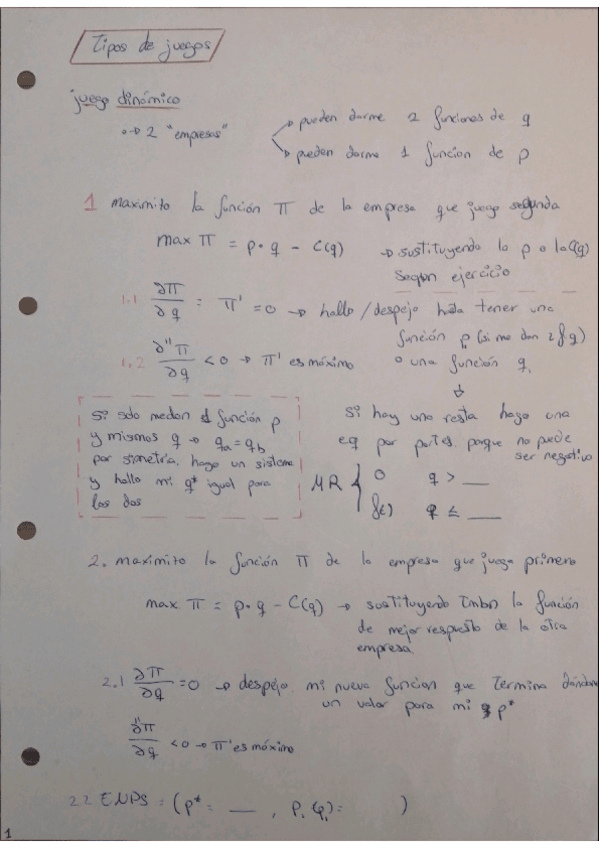 Tipos de juegos
juego dinámico
→ 2 "empresas"
→ pueden darme 2 funciones de q
→ pueden darme 1 funcion de p
1 maximito la función π de la empresa que juega segunda
max π = p · q - C(q) → sustituyendo la p o la C(q)
según ejercicio
1.1 ∂π/∂q = π' = 0 → hallo / despejo hasta tener una
función p, (si me dan 2 f q)
1.2 ∂''π/∂q < 0 → π' es máximo
o una función q,
↓
Si solo me dan 1 función p
y mismos q → qa = qb
por simetría, hago un sistema
y hallo mi q* igual para
los dos
Si hay una resta hago una
eq por partes, porque no puede
ser negativo
MR { 0 q > __
f(·) q ≤ __
2. maximito la función π de la empresa que juega primero
max π = p · q - C(q) → sustituyendo tmbn la función
de mejor respuesta de la otra
empresa
2.1 ∂π/∂q = 0 → despejo mi nueva funcion que termina dándome
un valor para mi p*
∂''π/∂q < 0 → π' es máximo
2.2 ENPS = (p* = __ , P, (p,) = )
1